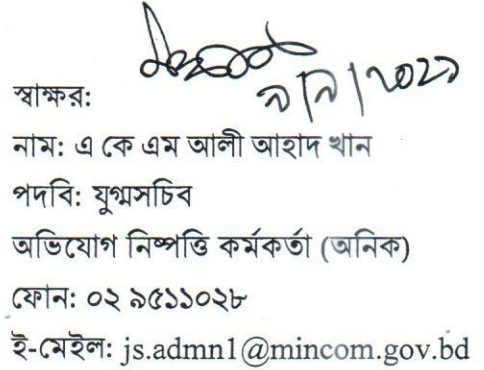 ৯/৯/২০২১
স্বাক্ষর:
নাম: এ কে এম আলী আহাদ খান
পদবি: যুগ্মসচিব
অভিযোগ নিষ্পত্তি কর্মকর্তা (অনিক)
ফোন: ০২ ৯৫১১০২৮
ই-মেইল: js.admn1@mincom.gov.bd